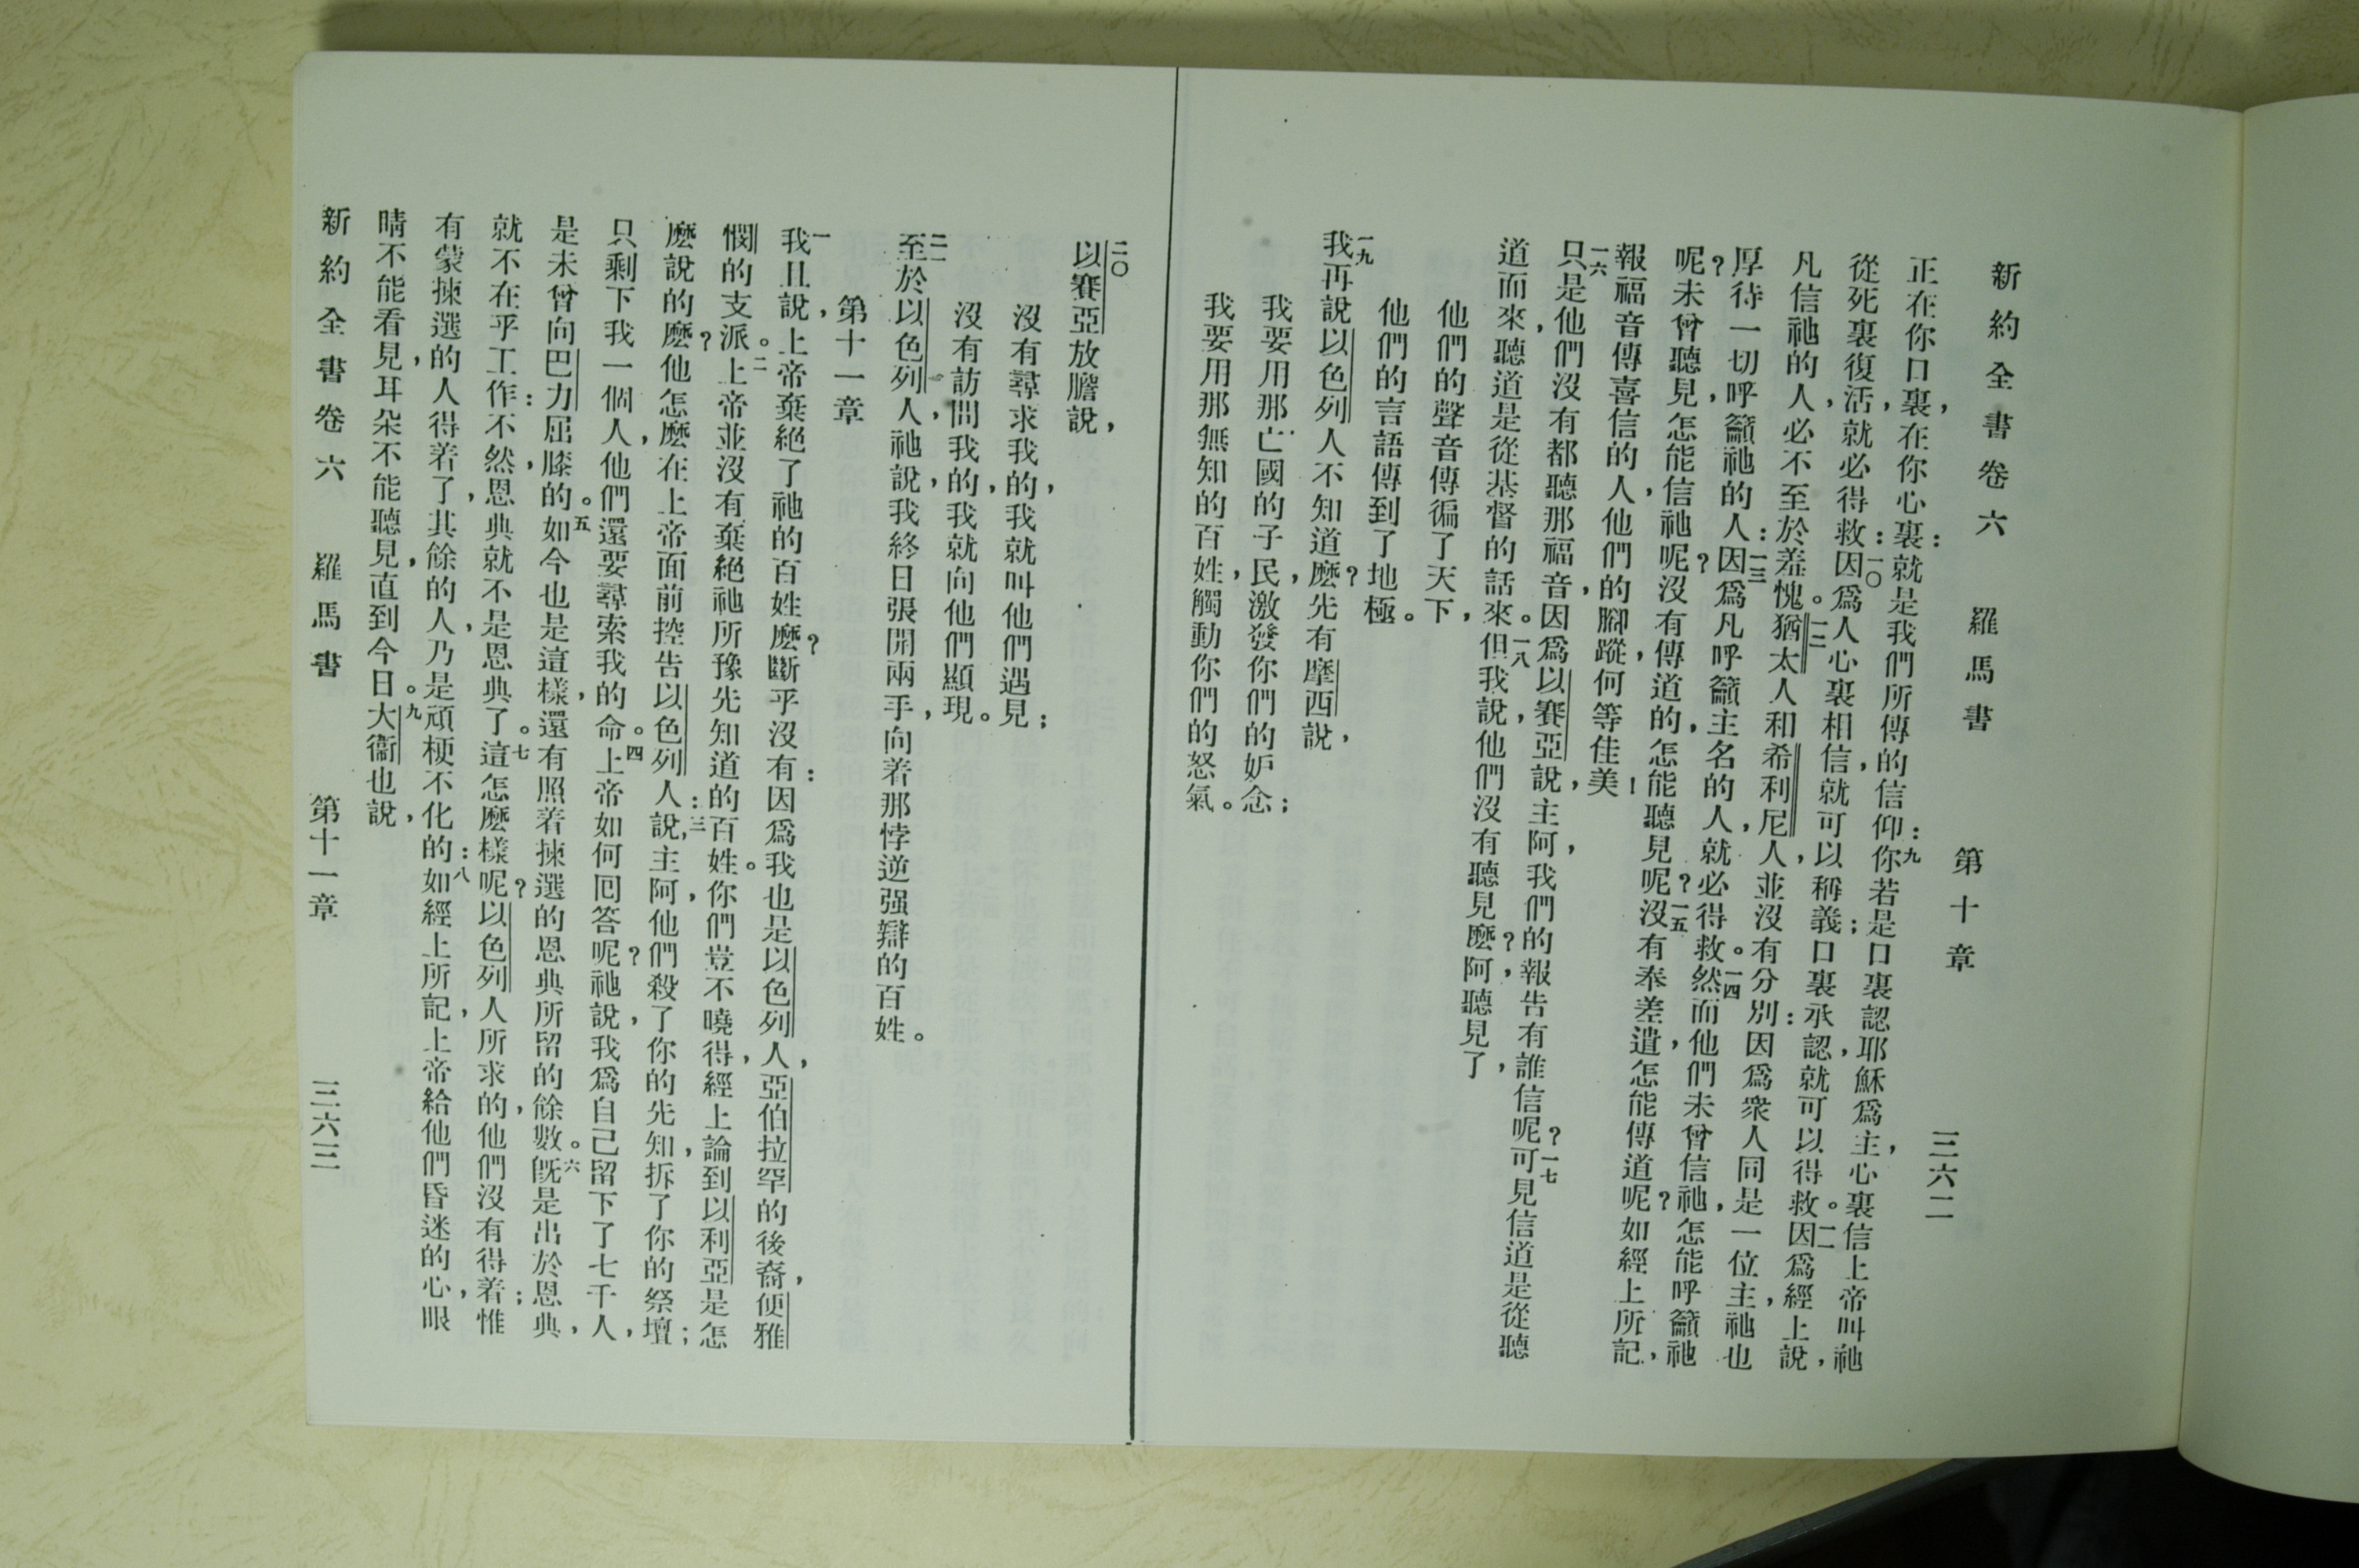 新約全書卷六 羅馬書 第十章 三六二
正在你口裏,在你心裏:就是我們所傳的信仰:九你若是口裏認耶穌爲主,心裏信上帝叫祂
從死裏復活,就必得救:一〇因爲人心裏相信,就可以稱義;口裏承認,就可以得救。一一因爲經上說,
凡信祂的人,必不至於羞愧。一二猶太人和希利尼人,並沒有分別:因爲衆人同是一位主,祂也
厚待一切呼籲祂的人:一三因爲凡呼籲主名的人,就必得救。一四然而他們未曾信祂,怎能呼籲祂
呢?未曾聽見,怎能信祂呢?沒有傳道的,怎能聽見呢?一五沒有奉差遣,怎能傳道呢?如經上所記,
報福音傳喜信的人,他們的腳蹤,何等佳美!
一六只是他們沒有都聽那福音,因爲以賽亞說,主阿,我們的報告有誰信呢?一七可見信道是從聽
道而來,聽道是從基督的話來。一八但我說,他們沒有聽見麽?阿,聽見了,
他們的聲音傳徧了天下,
他們的言語傳到了地極。
一九我再說以色列人不知道麽?先有摩西說,
我要用那亡國的子民,激發你們的妒念;
我要用那無知的百姓,觸動你們的怒氣。
二〇以賽亞放膽說,
沒有尋求我的,我就叫他們遇見;
沒有訪問我的,我就向他們顯現。
二一至於以色列人,祂說,我終日張開兩手,向着那悖逆强辯的百姓。
第十一章
一我且說,上帝棄絕了祂的百姓麽?斷乎沒有:因爲我也是以色列人,亞伯拉罕的後裔,便雅
憫的支派。二上帝並沒有棄絕祂所豫先知道的百姓。你們豈不曉得,經上論到以利亞是怎
麽說的麽?他怎麽在上帝面前控告以色列人:三說,主阿,他們殺了你的先知,拆了你的祭壇;
只剩下我一個人,他們還要尋索我的命。四上帝如何囘答呢?祂說,我爲自己留下了七千人,
是未曾向巴力屈膝的。五如今也是這樣,還有照着揀選的恩典所留的餘數。六旣是出於恩典,
就不在乎工作:不然,恩典就不是恩典了。七這怎麽樣呢?以色列人所求的,他們沒有得着;惟
有蒙揀選的人得着了,其餘的人,乃是頑梗不化的:八如經上所記,上帝給他們昏迷的心,眼
睛不能看見,耳朵不能聽見,直到今日。九大衞也說,
新約全書卷六 羅馬書 第十一章 三六三